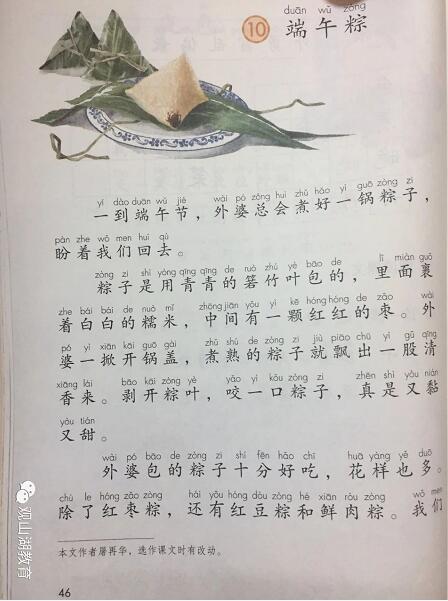 duān wǔ zòng
10 端午粽
yí dào duān wǔ jié wài pó zǒng huì zhǔ hǎo yì guō zòng zi
一到端午节，外婆总会煮好一锅粽子，
pàn zhe wǒ men huí qù
盼着我们回去。
zòng zi shì yòng qīng qīng de ruò zhú yè bāo de lǐ miàn guǒ
粽子是用青青的箬竹叶包的，里面裹
zhe bái bái de nuò mǐ zhōng jiān yǒu yì kē hóng hóng de zǎo wài
着白白的糯米，中间有一颗红红的枣。外
pó yì xiān kāi guō gài zhǔ shú de zòng zi jiù piāo chū yì gǔ qīng
婆一掀开锅盖，煮熟的粽子就飘出一股清
xiāng lái bāo kāi zòng yè yǎo yì kǒu zòng zi zhēn shì yòu nián
香来。剥开粽叶，咬一口粽子，真是又黏
yòu tián
又甜。
wài pó bāo de zòng zi shí fēn hǎo chī huā yàng yě duō
外婆包的粽子十分好吃，花样也多。
chú le hóng zǎo zòng hái yǒu hóng dòu zòng hé xiān ròu zòng wǒ men
除了红枣粽，还有红豆粽和鲜肉粽。我们
本文作者屠再华，选作课文时有改动。
46
观山湖教育